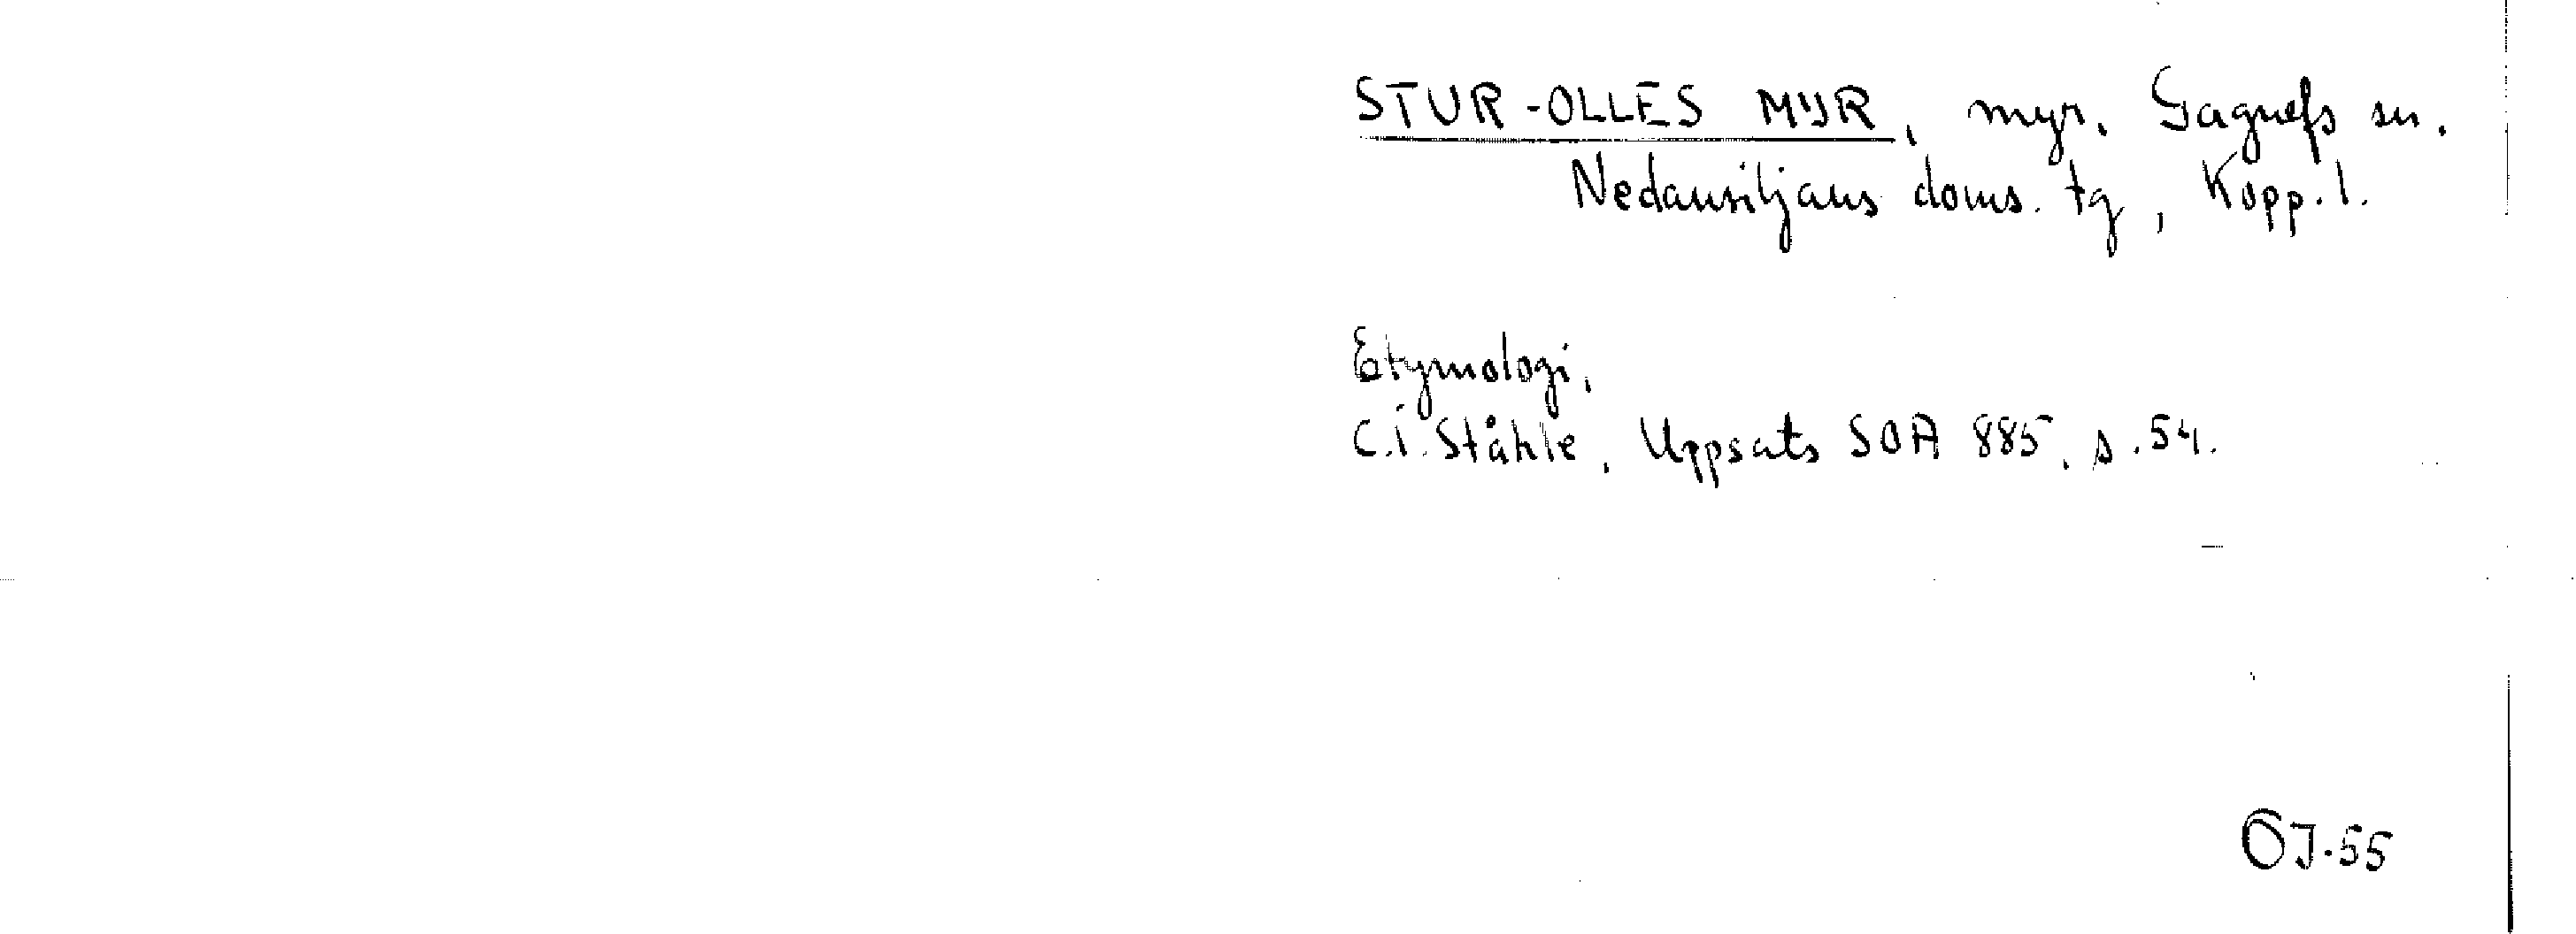 STUR-OLLES MYR, myr. Gagnefs sn.
Nedansiljans doms. tg, Kopp. l.
Etymologi.
C.I. Ståhle, Uppsats SOA 885, s. 54.
ÖJ.55